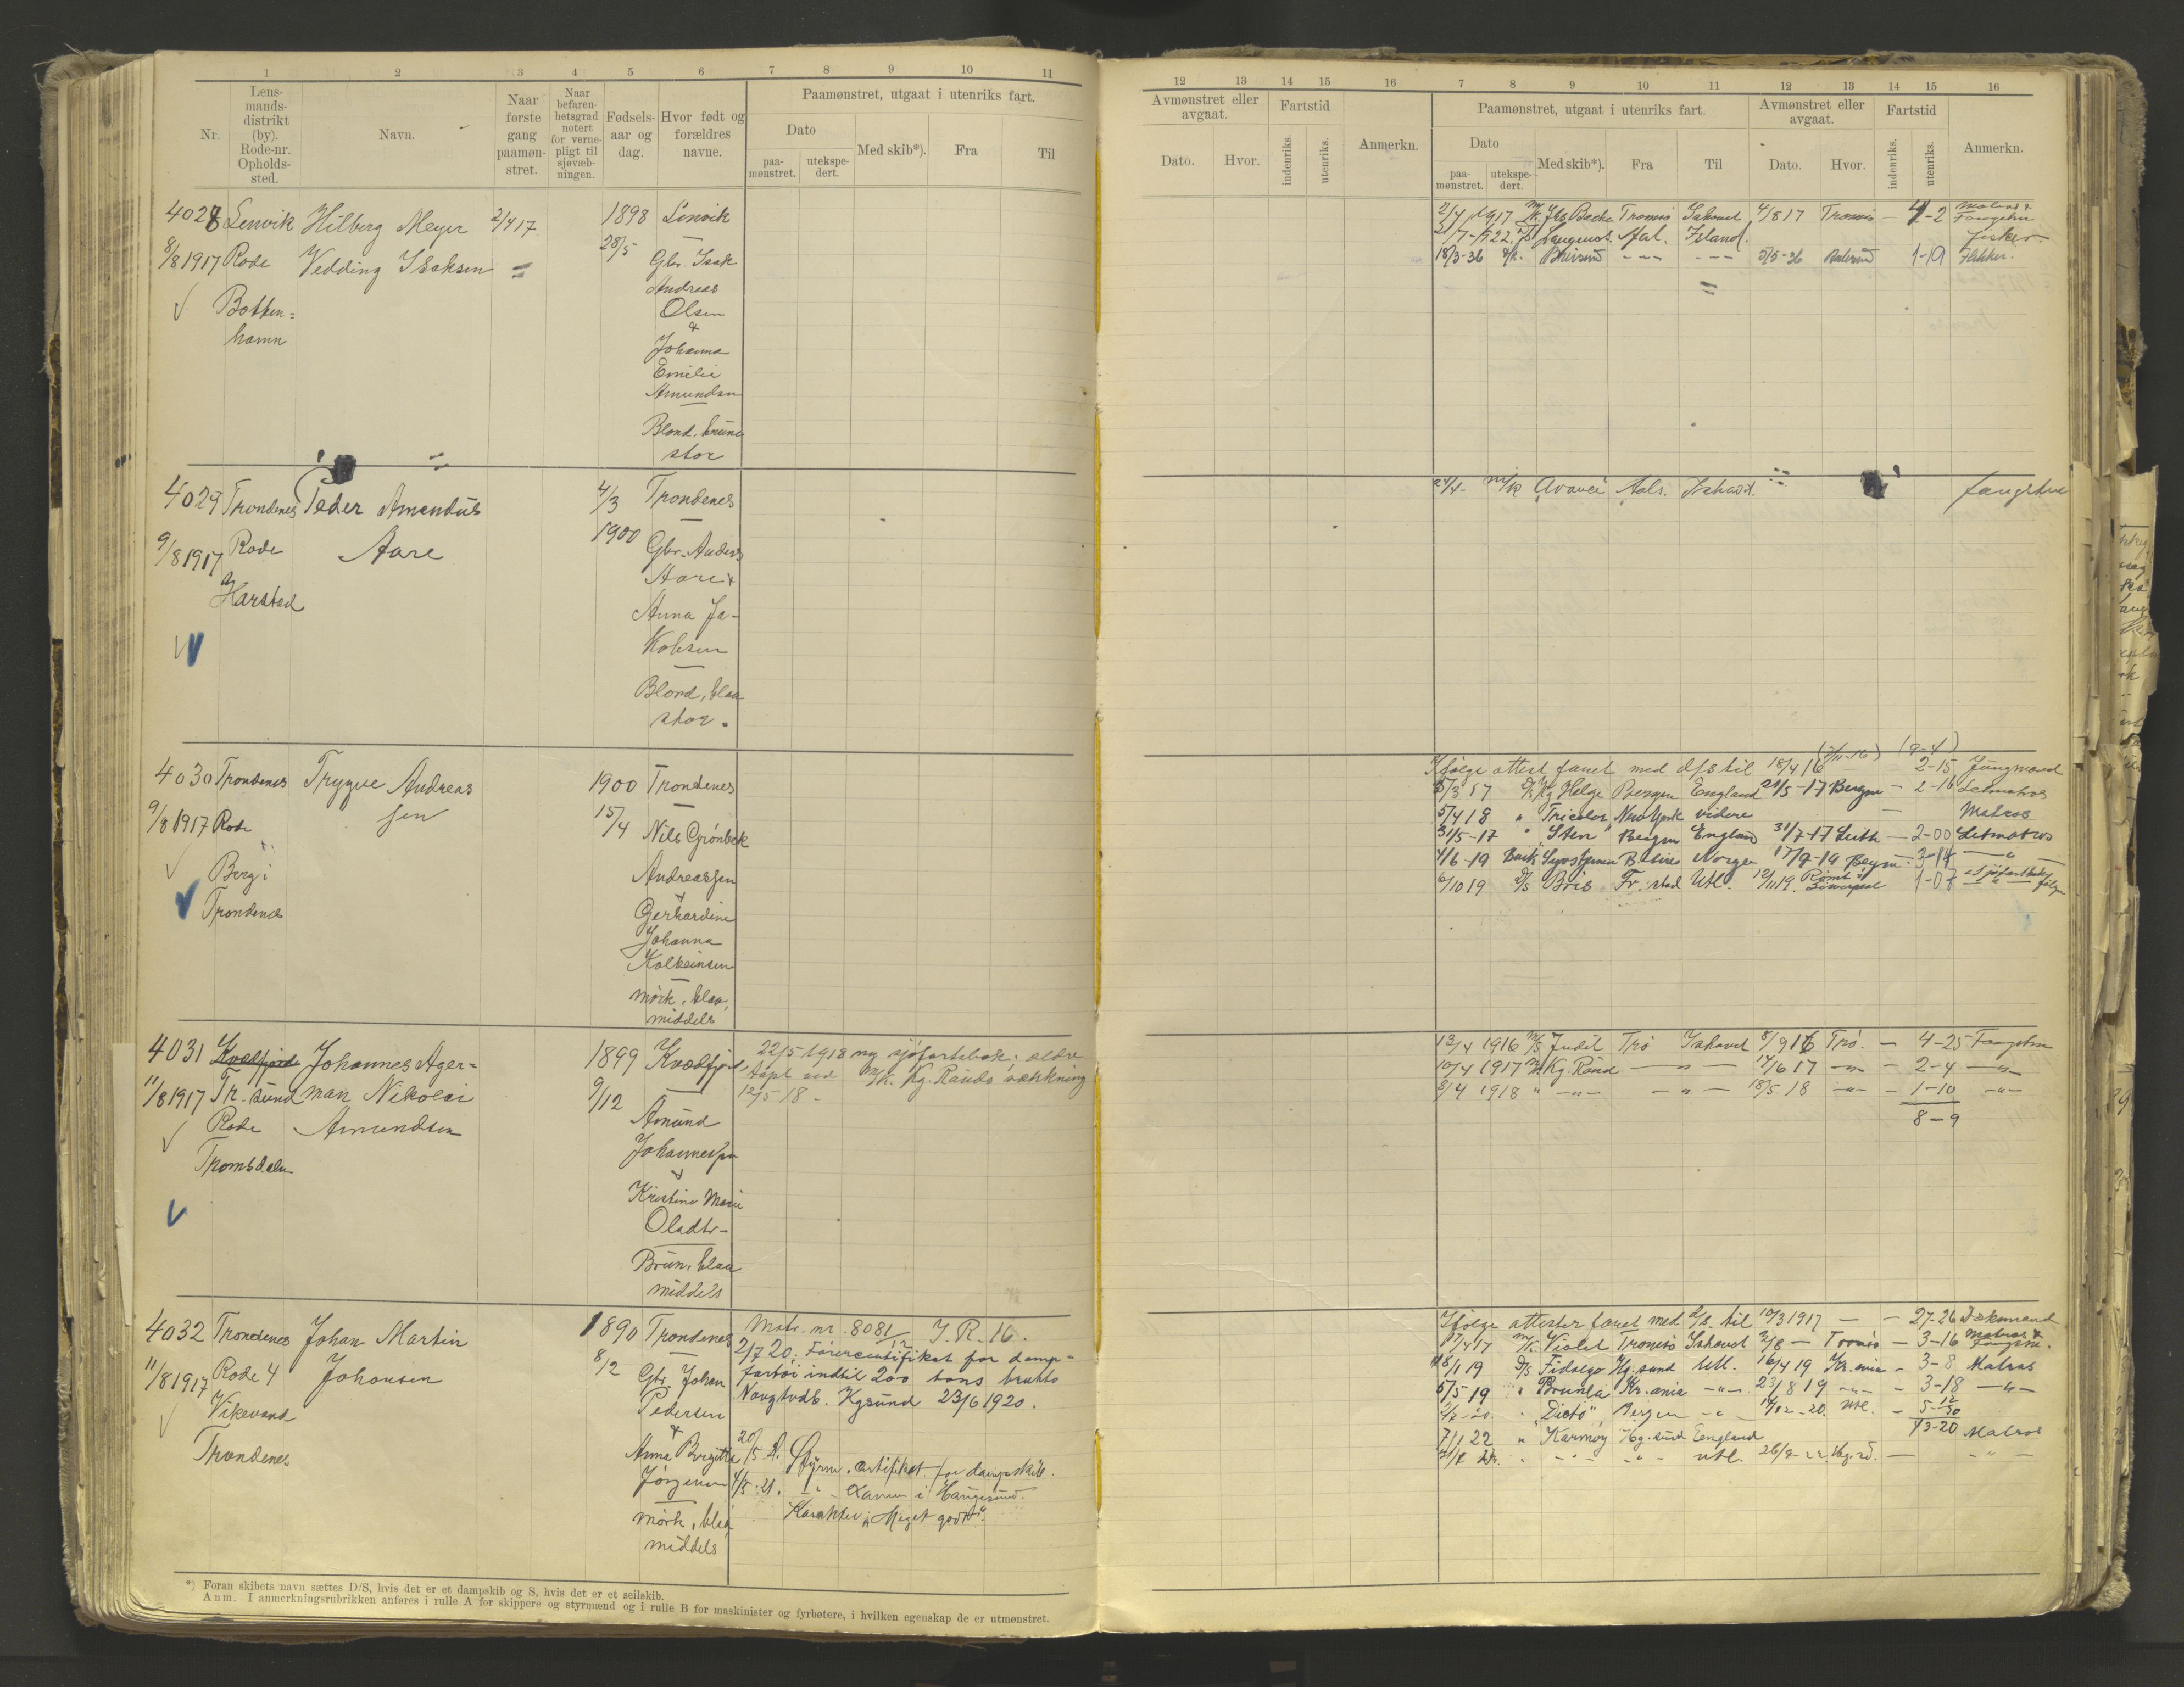 1 2 3 4 5 6 7 8 9 10 11
Nr.
Lens-
mands-
distrikt
(by).
Rode-nr.
Opholds-
sted.
Navn.
Naar
første
gang
paamøn-
stret.
Naar
befaren-
hetsgrad
notert
for verne-
pligt til
sjøvæb-
ningen.
Fødsels-
aar og
dag.
Hvor født og
forældres
navne.
Paamønstret, utgaat i utenriks fart.
Dato
paa-
mønstret.
utekspe-
dert.
Med skib*).
Fra
Til
4028 Lenvik Hilberg Meyer 2/4 17 1898 Lenvik
8/8 1917 Rode Vedding Isaksen 28/5 Gbr. Isak
Andreas
Botten=
hamn
Olsen
&
Johanna
Emelie
Amundsen
Blond, brune
stor
4029 Trondenes Peder Amandus 4/3 Trondenes
9/8 1917 Rode Aare 1900 Gbr. Anders
Harstad
Aare &
Anna Ja-
kobsen
Blond, blaa
stor.
4030 Trondenes Trygve Andreas 1900 Trondenes
sen
9/8 1917 Rode 15/4 Nils Grønbek
Berg i
Trondenes
Andreassen
&
Gerhardine
Johanna
Kolbeinsen
mørk, blaa,
middels
4031 Kvædfjord Johannes Ager= 1899 Kvædfjord 22/5 1918 ny sjøfartsbok; ældre
tapt ved M/K. Kg. Rauds vækkning
11/8 1917 Tr. sund man Nikolai 9/12 12/5 18 -
Rode Amundsen Amund
Tromsdalen
Johannessen
&
Kristine Marie
Oladtr-
Brun, blaa
middels
4032 Trondenes Johan Martin 1890 Trondenes Mstr. nr. 8081/12 I. R. 16.
11/8 1917 Rode 4 Johansen 8/2 Gbr. Johan 2/7 20: Førercertifikat for damp=
fartøi indtil 200 tons brutto
Vikevand Pedersen Navgtvdb. Kgsund 23/6 1920.
Trondenes
&
Anna Birgitte 20/5-21. Styrm. certifikat for dampskib.
Jørgensen 4/5-21. -"- Examen i Haugesund.
mørk, blaa Karakter "Meget godt".
middels
*) Foran skibets navn sættes D/S, hvis det er et dampskib og S, hvis det er et seilskib.
Anm. I anmerkningsrubrikken anføres i rulle A for skippere og styrmænd og i rulle B for maskinister og fyrbøtere, i hvilken egenskap de er utmønstret.
12 13 14 15 16 7 8 9 10 11 12 13 14 15 16
Avmønstret eller
avgaat.
Dato.
Hvor.
Fartstid
indenriks.
utenriks.
Anmerkn.
Paamønstret, utgaat i utenriks fart.
Dato
paa-
mønstret.
utekspe-
dert.
Med skib*).
Fra
Til
Avmønstret eller
avgaat.
Dato.
Hvor.
Fartstid
indenriks.
utenriks.
Anmerkn.
2/4 1917 M/K. Tromsø Ishavet 4/8 17 Tromsø - 4-2 Matros &
Fangstm
Aal. Island. Fisker
18/3-36 - - - - - - 5/5-36 1-19
M/K Aals. Ishavet. fangstm
Ifølge attest faret med d/s til 18/4 16 (2/11-16) (9-4) 2-15 Jungmand
D/S Kg Helge Bergen England 21/5-17 Bergen - 2-16 Letmatros
5/4 18 " Tricolor New York videre - Matros
31/5-17 " Sten " Bergen England 31/7-17 Leith - 2-00 Letmatros
4/6-19 Bark Norge 17/9-19 Bergen 3-14 - " -
6/10 19 D/S Bris Fr. stad Utl. 12/11 19. 1-07
13/4 1916 M/S Judit Trø Ishavet 8/9 16 Trø. - 4-25 Fangstm
10/4 1917 M/K Kg. Raud - " - 14/6 17 - " - - 2-4 - " -
8/4 1918 " - " - - " - 18/5 18 - " - - 1-10 - " -
8-9
Ifølge attester faret med d/s til 10/3 1917 - - 27-26 Dæksmand
17/4 17 M/K. Violet Tromsø Ishavet 2/8 - Tromsø - 3-16 Matros &
Fangstm.
18/1 19 D/S Fidalgo Hg. sund Utl. 16/4 19 Kr. ania - 3-8 Matros
5/5 19 " Brunla Kr. ania - " - 23/8 19 - " - - 3-18 - " -
" "Dicto" Bergen - " - 14/12-20. Utl. -
13-20
7/1 22 " Karmøy Hg. sund England Matros
" - " - - " - utl. 26/8-22. - " -